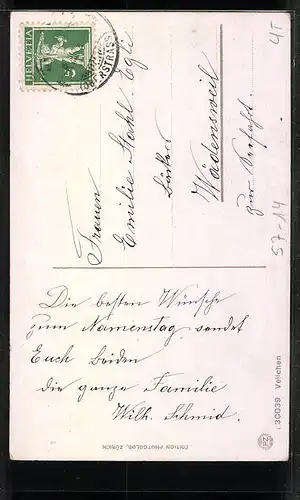 HELVETIA
OBERSTRASS
Frauen
Emilie Stahl Egli
Wädensweil
zur Seefahrt.
4T
57-14
Die besten Wünsche
zum Namenstag sendet
Euch beiden
die ganze Familie
Wilh. Schmid.
EDITION PHOTOGLOB, ZÜRICH
L 30039 Veilchen